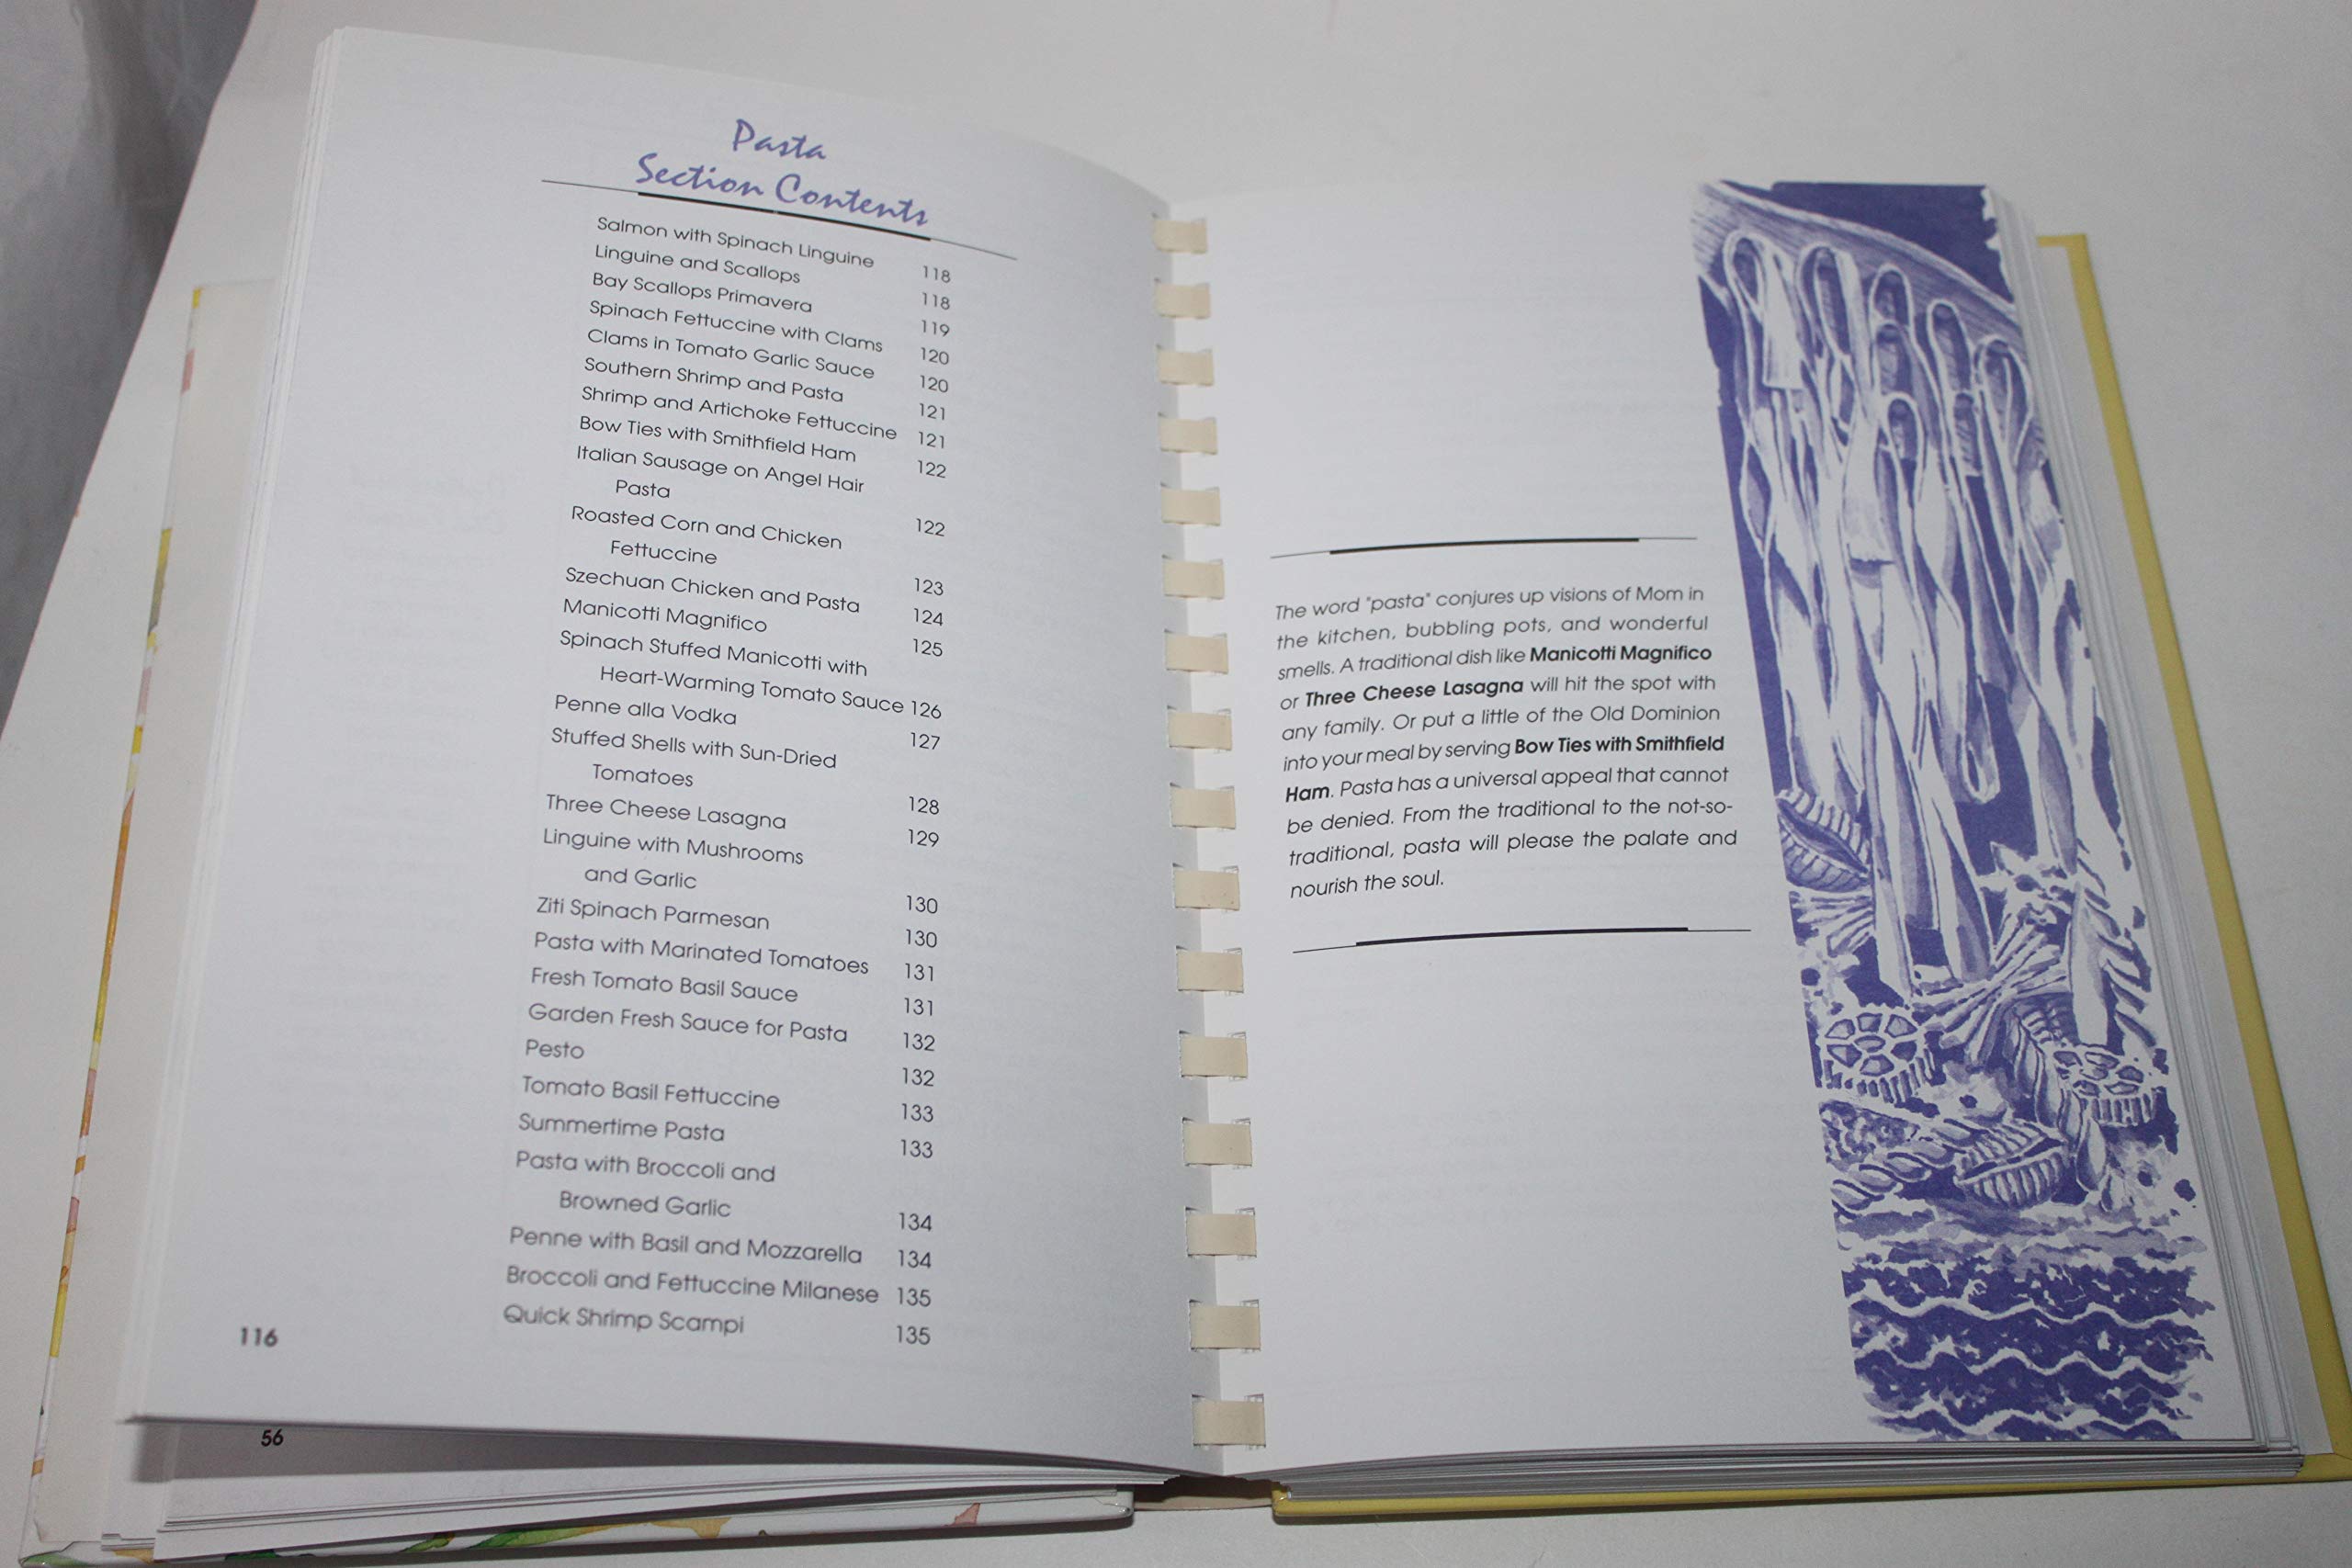 Pasta
Section Contents
Salmon with Spinach Linguine 118
Linguine and Scallops 118
Bay Scallops Primavera 119
Spinach Fettuccine with Clams 120
Clams in Tomato Garlic Sauce 120
Southern Shrimp and Pasta 121
Shrimp and Artichoke Fettuccine 121
Bow Ties with Smithfield Ham 122
Italian Sausage on Angel Hair
Pasta 122
Roasted Corn and Chicken
Fettuccine 123
Szechuan Chicken and Pasta 124
Manicotti Magnifico 125
Spinach Stuffed Manicotti with
Heart-Warming Tomato Sauce 126
Penne alla Vodka 127
Stuffed Shells with Sun-Dried
Tomatoes 128
Three Cheese Lasagna 129
Linguine with Mushrooms
and Garlic 130
Ziti Spinach Parmesan 130
Pasta with Marinated Tomatoes 131
Fresh Tomato Basil Sauce 131
Garden Fresh Sauce for Pasta 132
Pesto 132
Tomato Basil Fettuccine 133
Summertime Pasta 133
Pasta with Broccoli and
Browned Garlic 134
Penne with Basil and Mozzarella 134
Broccoli and Fettuccine Milanese 135
Quick Shrimp Scampi 135
116
56
The word "pasta" conjures up visions of Mom in
the kitchen, bubbling pots, and wonderful
smells. A traditional dish like Manicotti Magnifico
or Three Cheese Lasagna will hit the spot with
any family. Or put a little of the Old Dominion
into your meal by serving Bow Ties with Smithfield
Ham. Pasta has a universal appeal that cannot
be denied. From the traditional to the not-so-
traditional, pasta will please the palate and
nourish the soul.